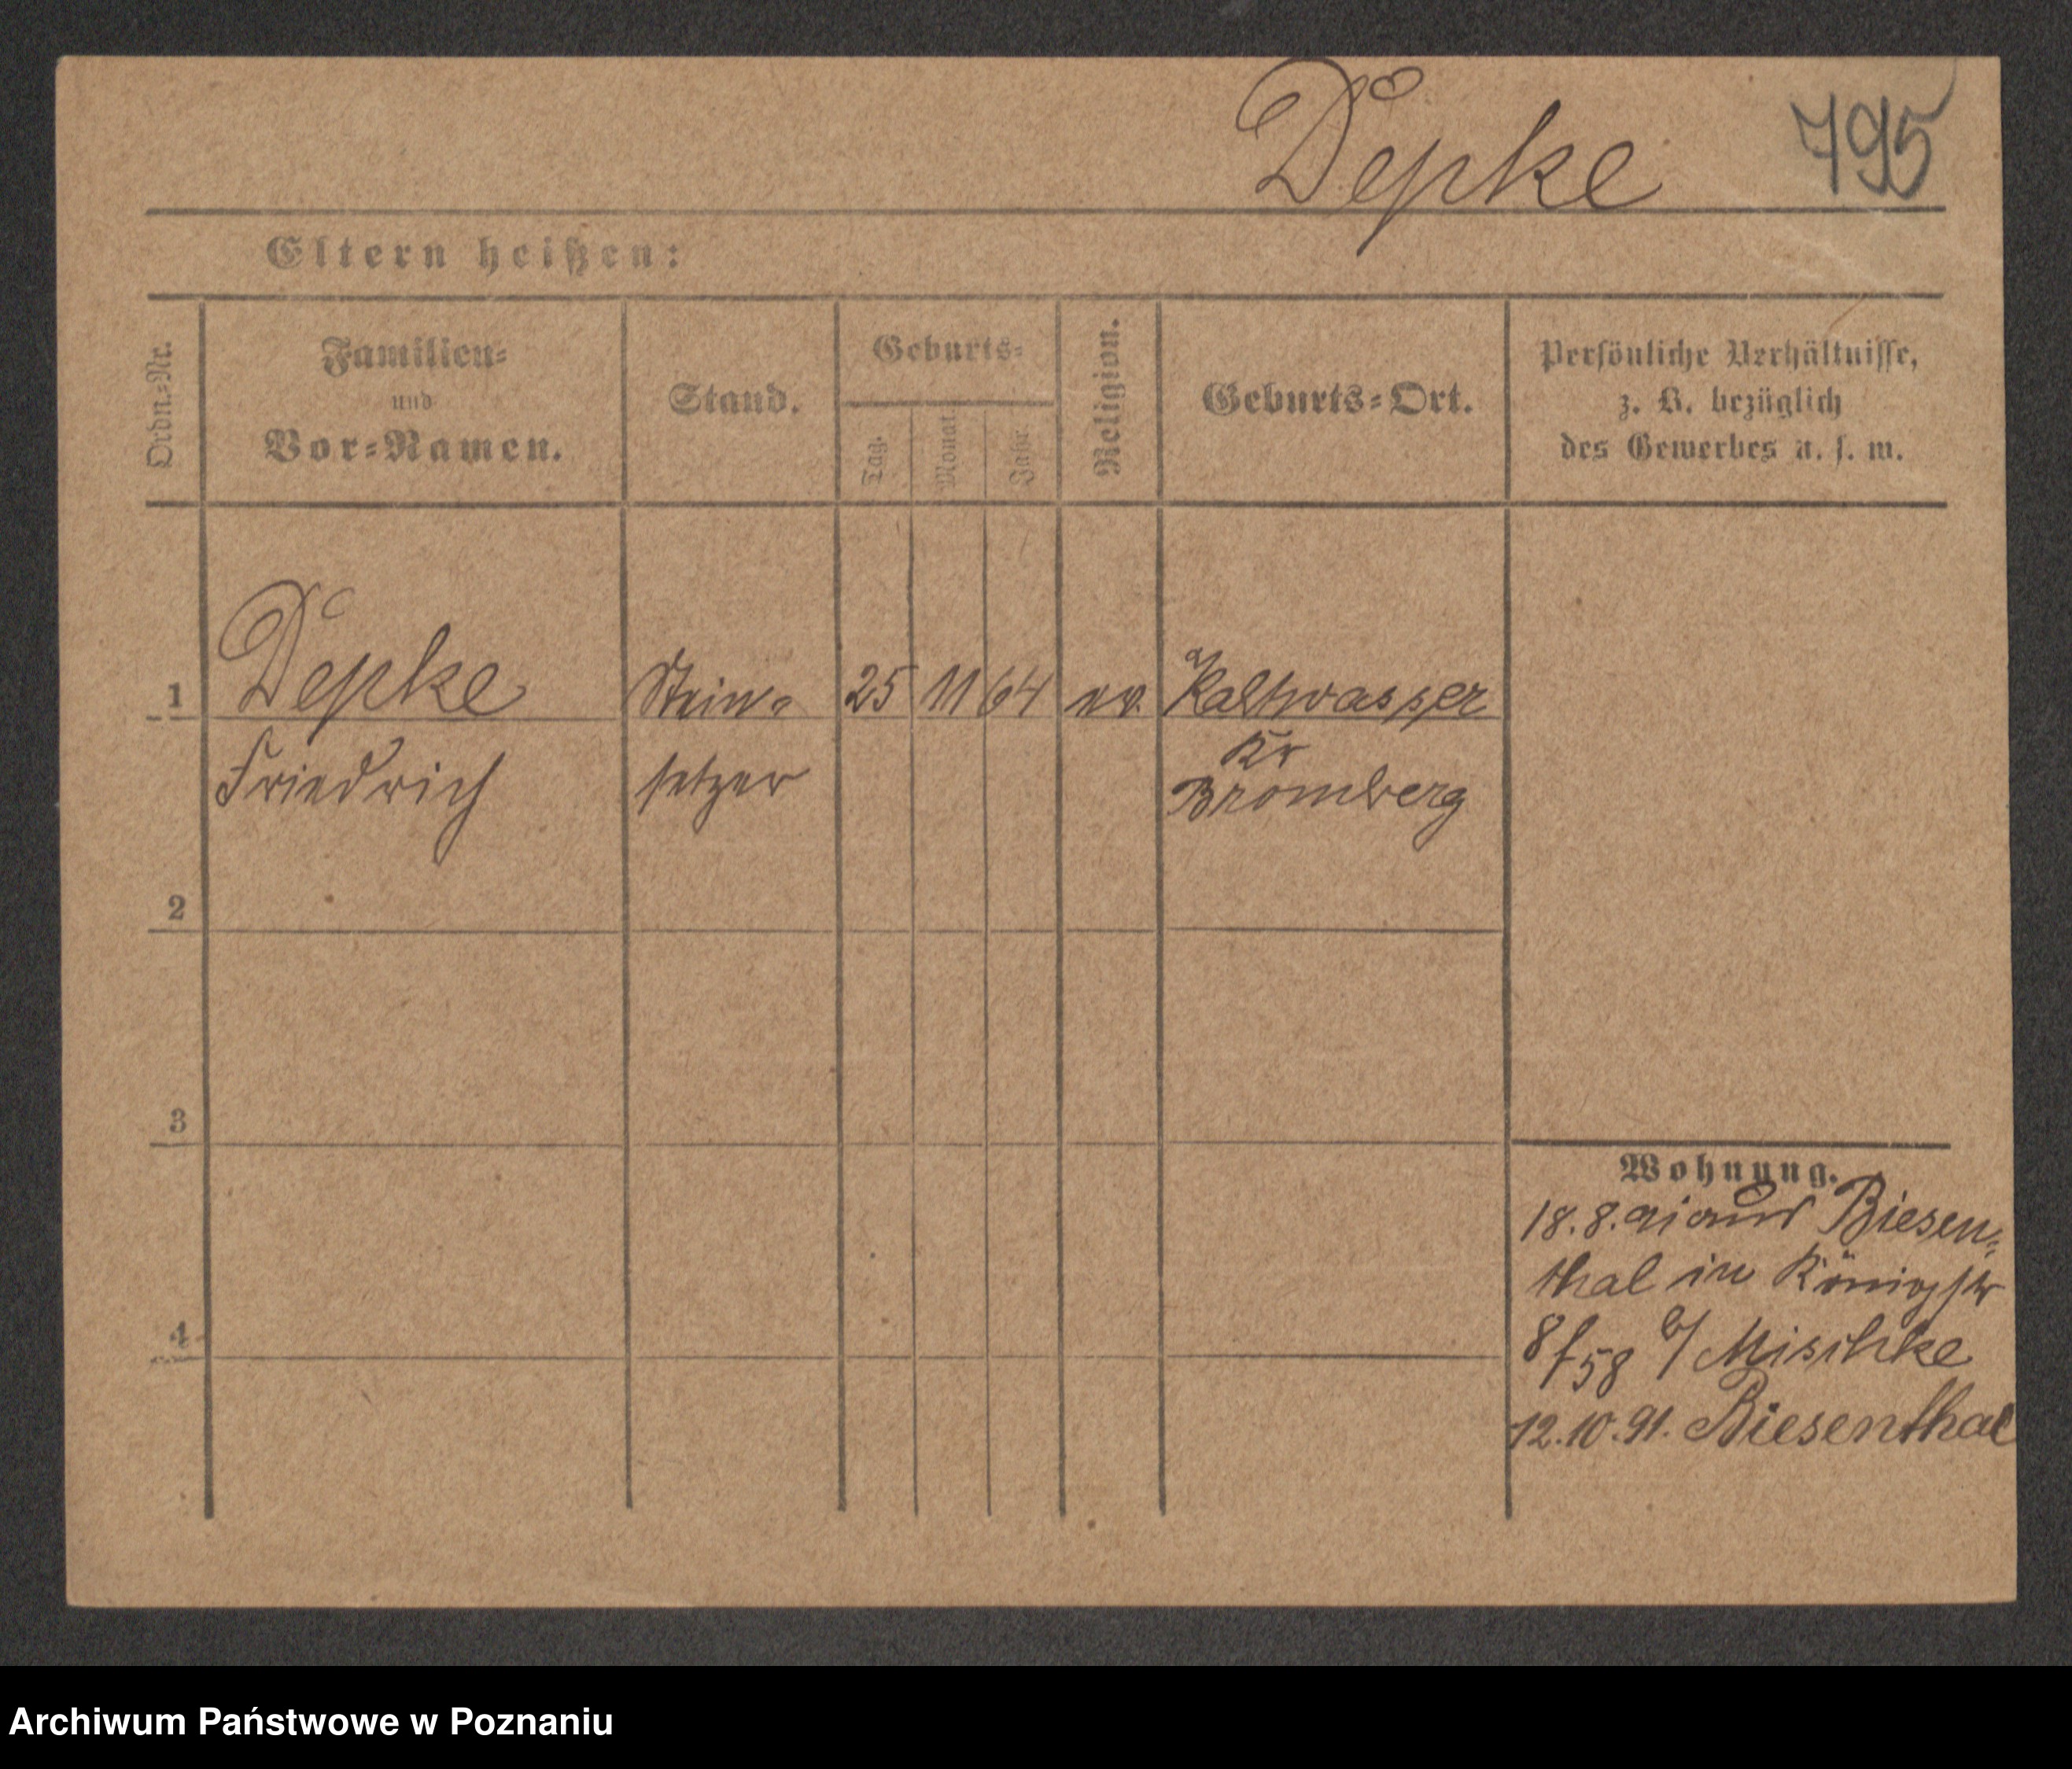 Depke
795
Eltern heißen:
Ordn.=Nr.
Familien=
und
Vor=Namen.
Stand.
Geburts=
Tag.
Monat.
Jahr.
Religion.
Geburts=Ort.
Persönliche Verhältnisse,
z. B. bezüglich
des Gewerbes u. s. w.
1
Depke
Friedrich
Stein=
setzer
25
11
64
ev.
Kaltwasser
Kr
Bromberg
2
3
4
Wohnung.
18.8.91 aus Biesen=
thal in Königstr
8/58 b/ Mischke
12.10.91. Biesenthal
Archiwum Państwowe w Poznaniu